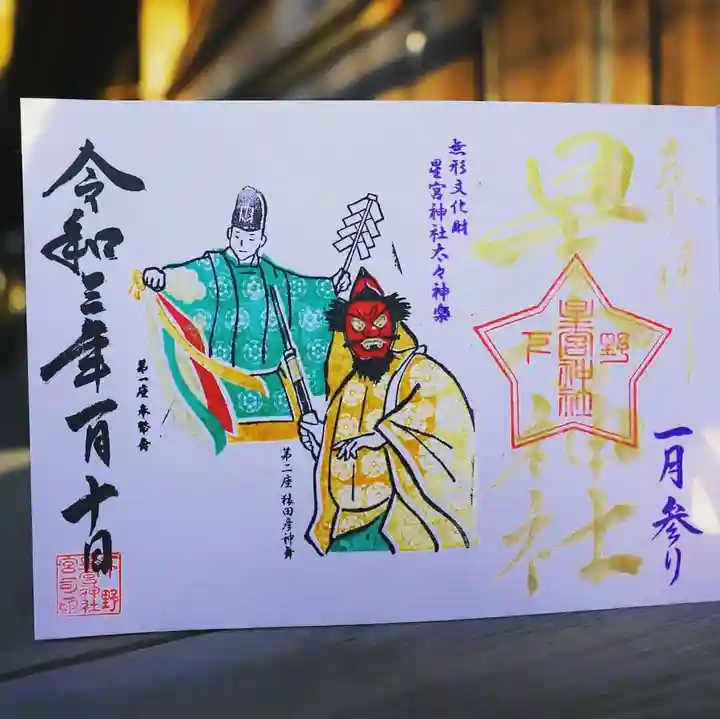 奉拝
星宮神社
下野
星宮神社
一月参り
無形文化財
星宮神社太々神楽
第二座 猿田彦神舞
第一座 奉幣舞
令和三年一月十日
下野
星宮神社
宮司印